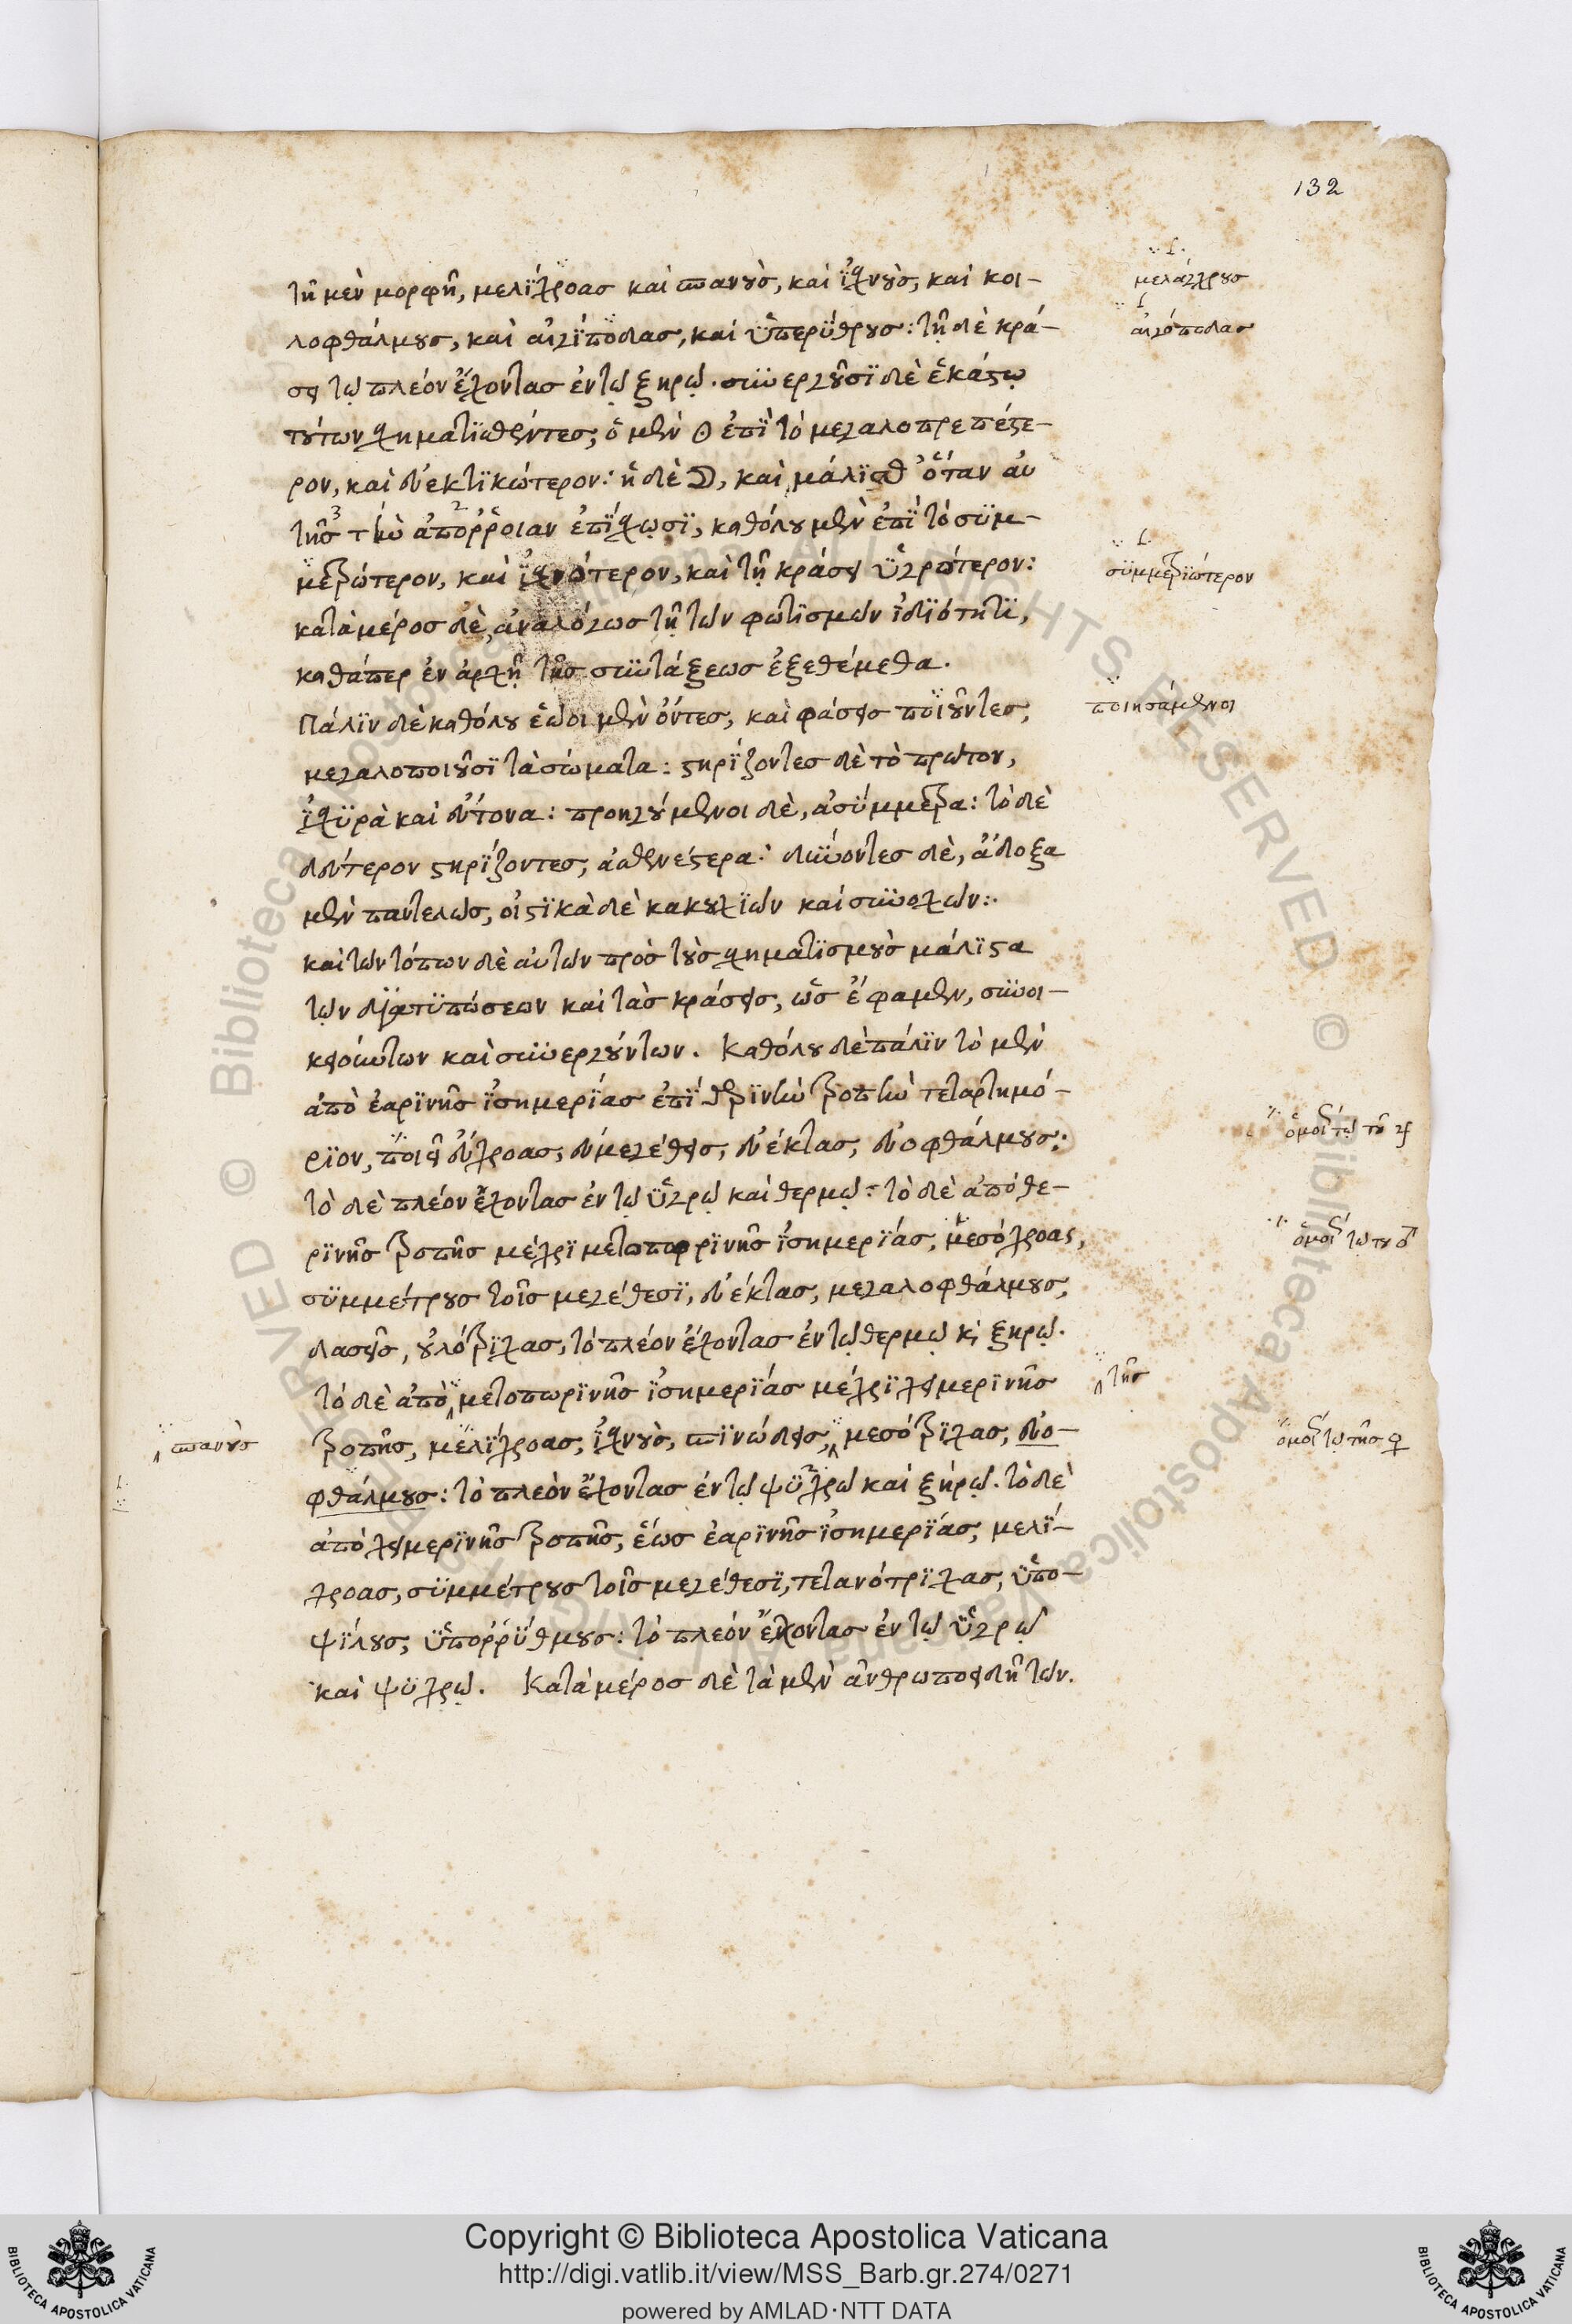 132
τῇ μὲν μορφῇ, μελίχροας καὶ σπανοὺς, καὶ ἰσχνοὺς, καὶ κοι-
μελάγχρους
λοφθάλμους, καὶ αἰγίποδας, καὶ ὑπερύθρους: τῇ δὲ κρά-
αἰγόποδας
σει τῷ πλέον ἔχοντας ἐν τῷ ξηρῷ. συνεργοῦσι δὲ ἑκάστῳ
τούτων σχηματισθέντες, ὁ μὲν ☉ ἐπὶ τὸ μεγαλοπρεπέστε-
ρον, καὶ εὐεκτικώτερον: ἡ δὲ ☽, καὶ μάλισθ' ὅταν αὐ
τῆς τὴν ἀπόῤῥοιαν ἐπίσχωσι, καθόλου μὲν ἐπὶ τὸ συμ-
μετρώτερον, καὶ ἰσχνότερον, καὶ τῇ κράσει ὑγρότερον:
συμμετριώτερον
κατὰ μέρος δὲ, ἀναλόγως τῇ τῶν φωτισμῶν ἰδιότητι,
καθάπερ ἐν ἀρχῇ τῆς συντάξεως ἐξεθέμεθα.
Πάλιν δὲ καθόλου ἑῷοι μὲν ὄντες, καὶ φάσεις ποιοῦντες,
ποιησάμενοι
μεγαλοποιοῦσι τὰ σώματα: στηρίζοντες δὲ τὸ πρῶτον,
ἰσχυρὰ καὶ εὔτονα: προηγούμενοι δὲ, ἀσύμμετρα: τὸ δὲ
δεύτερον στηρίζοντες, ἀσθενέστερα: δύνοντες δὲ, ἄδοξα
μὲν παντελῶς, οἰστικὰ δὲ κακουχιῶν καὶ συνοχῶν:
καὶ τῶν τόπων δὲ αὐτῶν πρὸς τοὺς σχηματισμοὺς μάλιστα
τῶν διατυπώσεων καὶ τὰς κράσεις, ὡς ἔφαμεν, συνοι-
κειούντων καὶ συνεργούντων. Καθόλου δὲ πάλιν τὸ μὲν
ἀπὸ ἐαρινῆς ἰσημερίας ἐπὶ θερινὴν τροπὴν τεταρτημό-
ριον, ποιεῖ εὔχροας, εὐμεγέθεις, εὐέκτας, εὐοφθάλμους:
ὁμοί τῷ τοῦ ♃
τὸ δὲ πλέον ἔχοντας ἐν τῷ ὑγρῷ καὶ θερμῷ: τὸ δὲ ἀπὸ θε-
ρινῆς τροπῆς μέχρι μετοπωρινῆς ἰσημερίας, μεσόχροας,
ὁμοί τῷ του ♂
συμμέτρους τοῖς μεγέθεσι, εὐέκτας, μεγαλοφθάλμους,
δασεῖς, οὐλότριχας, τὸ πλέον ἔχοντας ἐν τῷ θερμῷ κὶ ξηρῷ.
τὸ δὲ ἀπὸ μετοπωρινῆς ἰσημερίας μέχρι χειμερινῆς
τῆς
τροπῆς, μελίχροας, ἰσχνοὺς, σπινώδεις, μεσότριχας, εὐο-
σπανοὺς
ὁμοί τῷ τῆς ♀
φθάλμους: τὸ πλεὸν ἔχοντας ἐν τῷ ψυχρῷ καὶ ξήρῳ. τὸ δὲ
ἀπὸ χειμερινῆς τροπῆς, ἕως ἐαρινῆς ἰσημερίας, μελί-
χροας, συμμέτρους τοῖς μεγέθεσι, τετανότριχας, ὑπο-
ψίλους, ὑποῤῥύθμους: τὸ πλεόν ἔχοντας ἐν τῷ ὑγρῷ
καὶ ψυχρῷ. Κατὰ μέρος δὲ τὰ μὲν ἀνθρωποειδῆ τῶν.
Copyright © Biblioteca Apostolica Vaticana
http://digi.vatlib.it/view/MSS_Barb.gr.274/0271
powered by AMLAD·NTT DATA
BIBLIOTECA APOSTOLICA VATICANA
BIBLIOTECA APOSTOLICA VATICANA